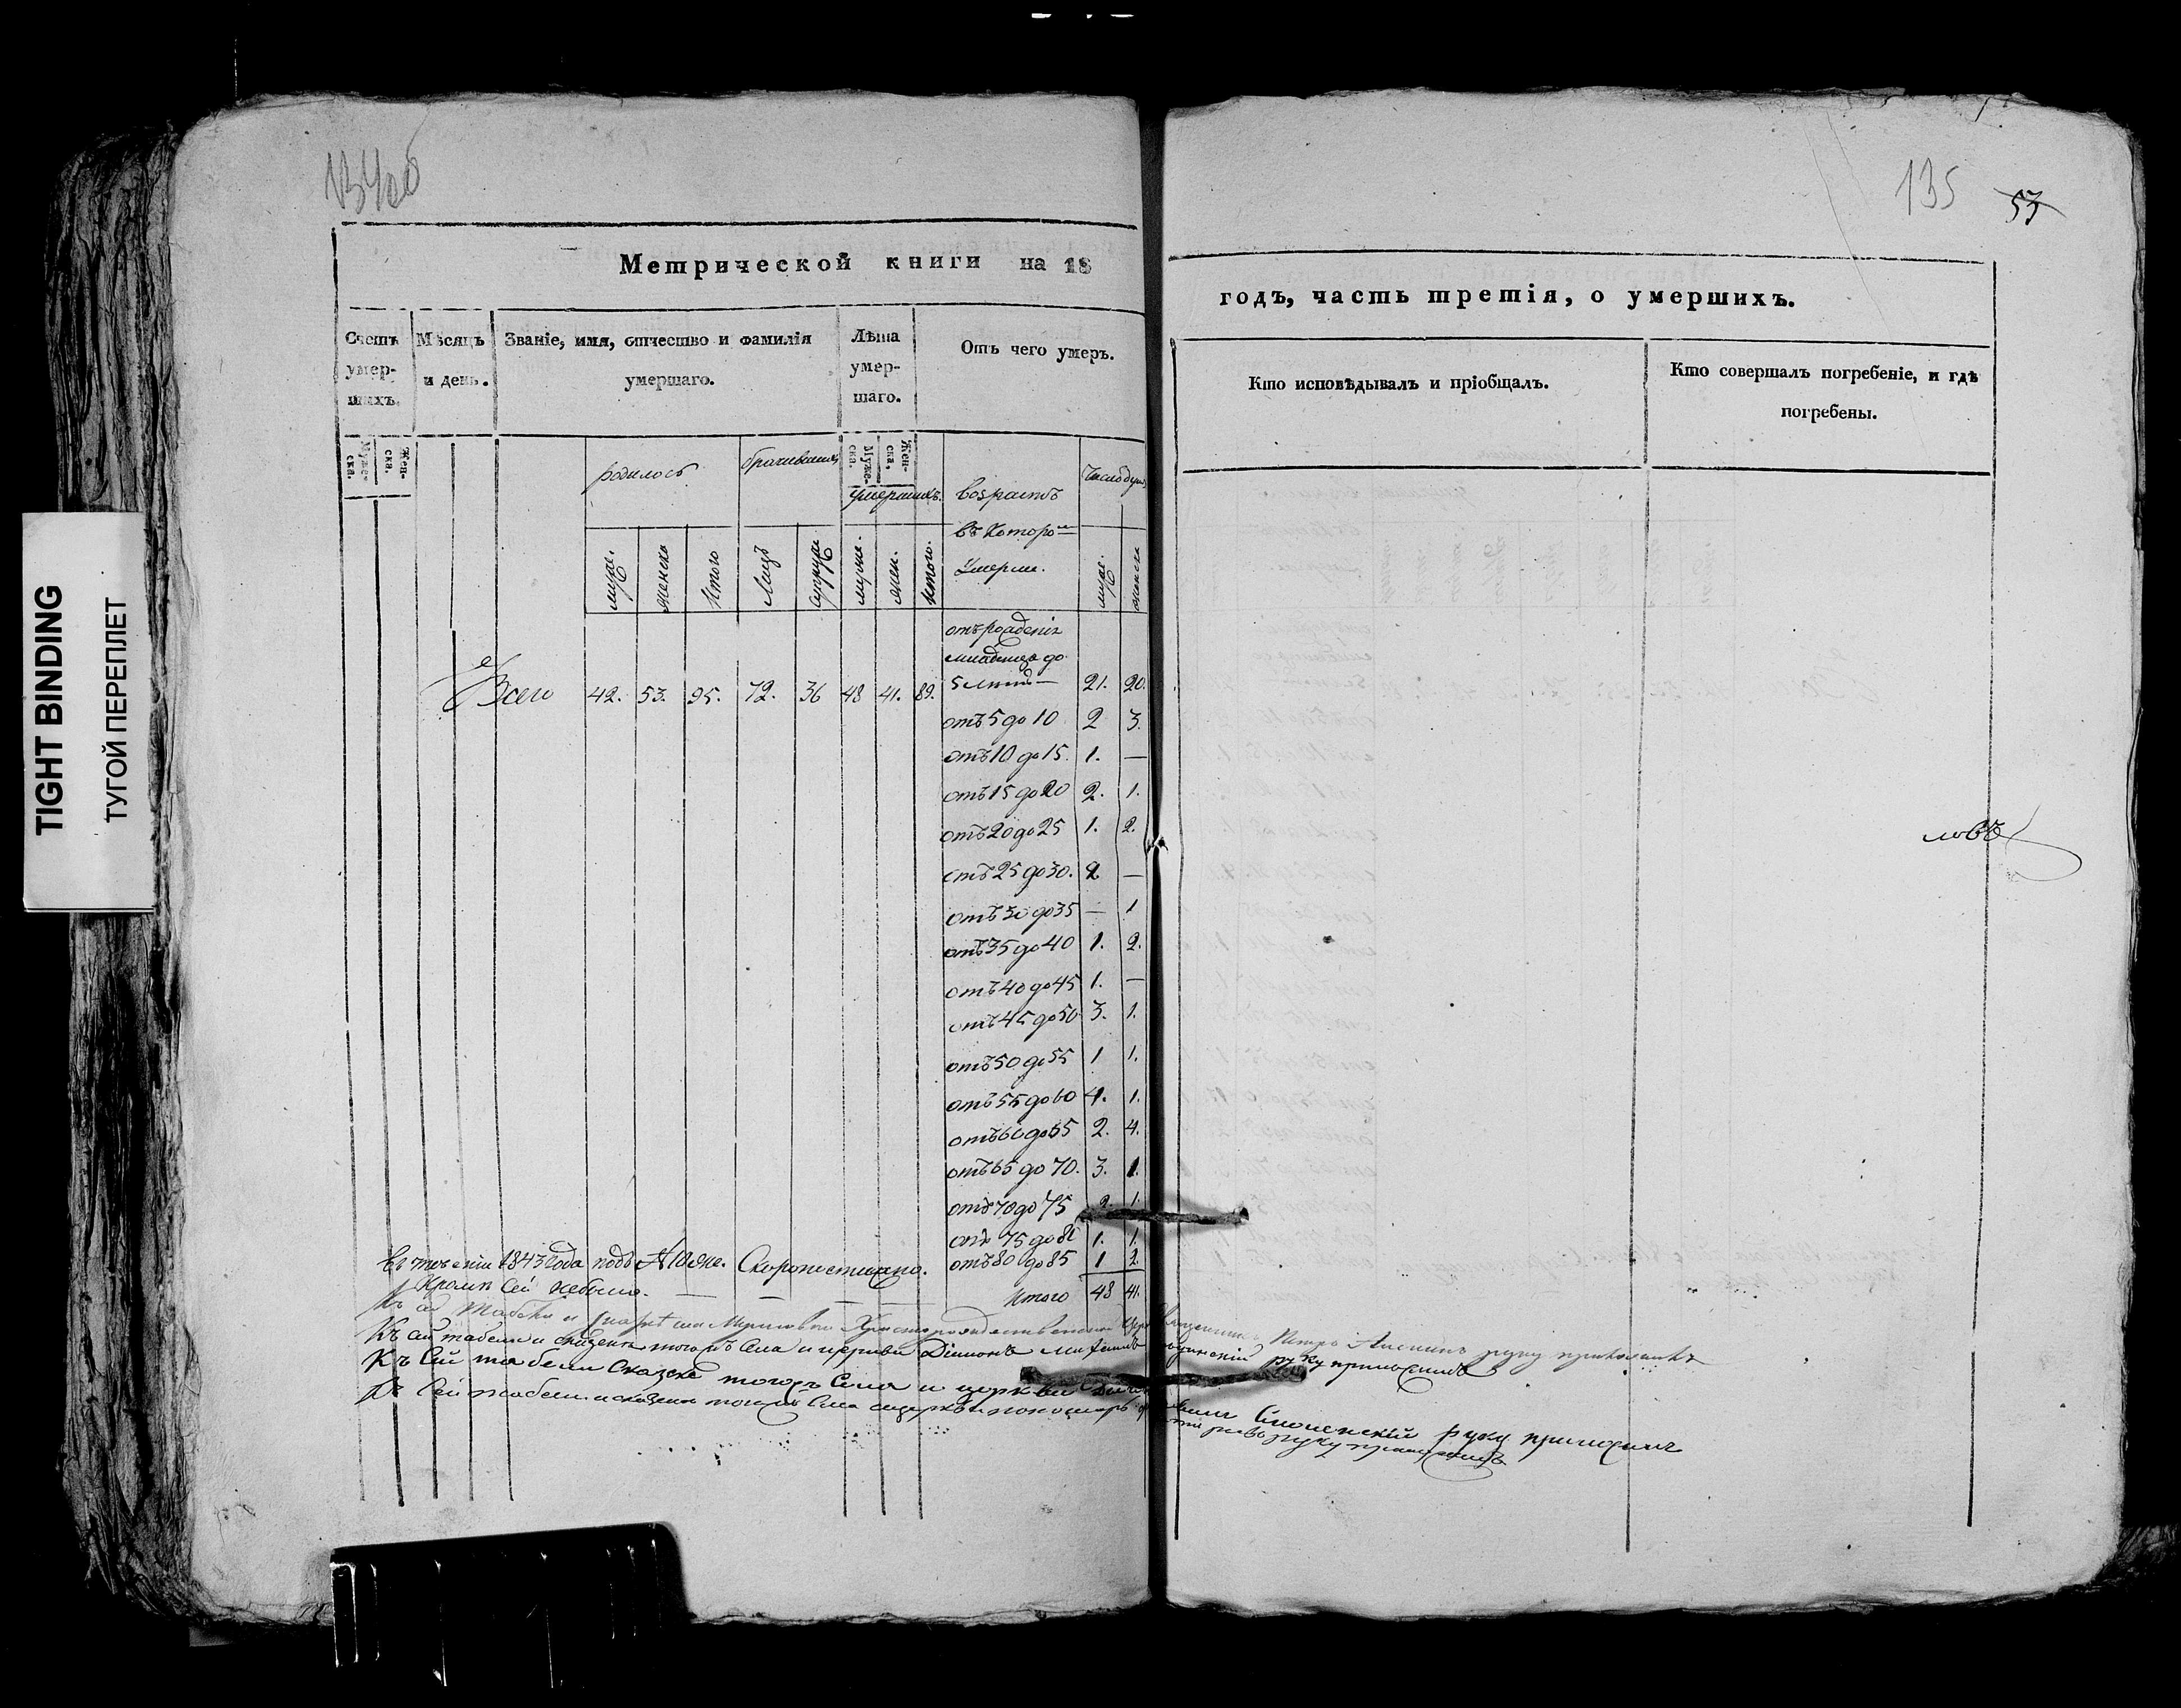 134об
135
53
TIGHT BINDING
ТУГОЙ ПЕРЕПЛЕТ
Метрической книги на 18
годъ, часть третія, о умершихъ.
Счетъ умер-шихъ.
Мѣсяцъ и день.
Званіе, имя, отчество и фамилія умершаго.
Лѣта умер-шаго.
Отъ чего умеръ.
Кто исповѣдывалъ и пріобщалъ.
Кто совершалъ погребеніе, и гдѣ погребены.
Муже-ска.
Жен-ска.
Муже-ска.
Жен-ска.
родилось
умершихъ.
возрастъ
въ которо
умерли.
число душъ
муж.
женска
итого
лицъ
супруж
муж.
жен.
итого.
муж.
женска
отъ рожденія
младенца до
5 лѣтъ — 21. 20.
Всего 42. 53. 95. 72. 36 48 41. 89.
отъ 5 до 10 2 3.
отъ 10 до 15. 1. —
отъ 15 до 20 2. 1.
отъ 20 до 25 1. 2.
отъ 25 до 30. 2 —
отъ 30 до 35 — 1
отъ 35 до 40 1. 2.
отъ 40 до 45 1. —
отъ 45 до 50 3. 1.
отъ 50 до 55 1 1.
отъ 55 до 60 4. 1.
отъ 60 до 65 2. 4.
отъ 65 до 70. 3. 1.
отъ 70 до 75 2. 1.
отъ 75 до 80 1. 1.
отъ 80 до 85 1 2.
итого 48 41.
ловъ
Въ теченіи 1843 года подъ № 10 же. Скоропостижно.
Кромѣ сей небыло.
Къ сей табели и Христорождественской руку приложилъ
Къ сей табели и сказки тогожъ села и церкви Діаконъ руку приложилъ
Къ сей табели сказке тогожъ села и церкви Смоленскій руку приложилъ
Къ сей табели и сказки тогожъ села и церкви пономарь руку приложилъ